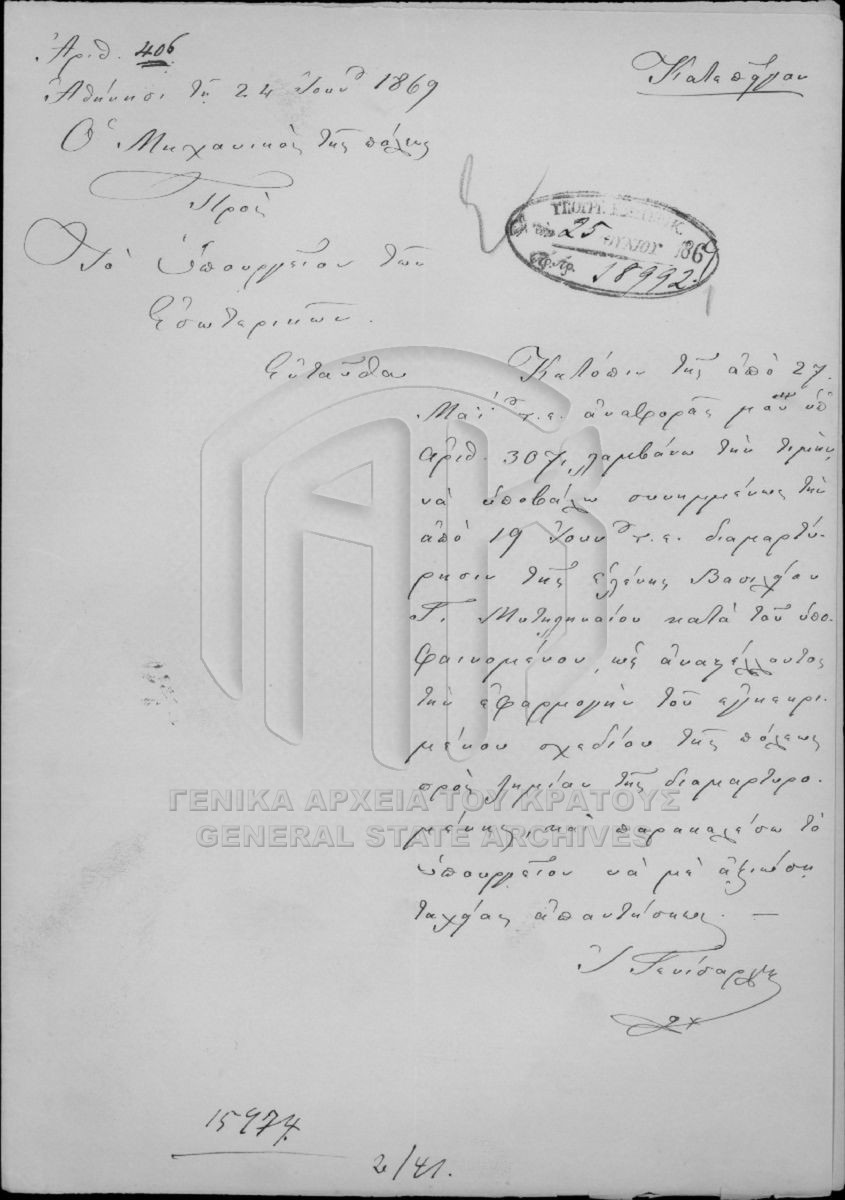 Ἀριθ. 406
Κατεπεῖγον
Ἀθήνησι τῇ 24 Ἰουν 1869
Ὁ Μηχανικὸς τῆς πόλεως
Πρὸς
Τὸ Ὑπουργεῖον τῶν
Ἐσωτερικῶν.
Ἐνταῦθα
ΥΠΟΥΡΓ. ΕΣΩΤΕΡΙΚ.
25 ΙΟΥΝΙΟΥ 1869
Ἀρ. Πρ. 18992
Κατόπιν τῆς ἀπὸ 27
Μαΐου τ.ε. ἀναφορᾶς μου ὑπ'
ἀριθ. 307, λαμβάνω τὴν τιμὴν
νὰ ὑποβάλω συνημμένως τὴν
ἀπὸ 19 Ἰουν τ.ε. διαμαρτύ-
ρησιν τῆς Ἑλένης Βασιλείου
Γ. Μυτιληναίου κατὰ τοῦ ὑπο-
φαινομένου, ὡς ἀναβάλλοντος
τὴν ἐφαρμογὴν τοῦ ἐγκεκρι-
μένου σχεδίου τῆς πόλεως
πρὸς ζημίαν τῆς διαμαρτυρο-
μένης, καὶ παρακαλέσω τὸ
Ὑπουργεῖον νὰ μὲ ἀξιώσῃ
ταχείας ἀπαντήσεως. —
Ἰ Γενίσαρλης
ΓΕΝΙΚΑ ΑΡΧΕΙΑ ΤΟΥ ΚΡΑΤΟΥΣ
GENERAL STATE ARCHIVES
15974
2/41.